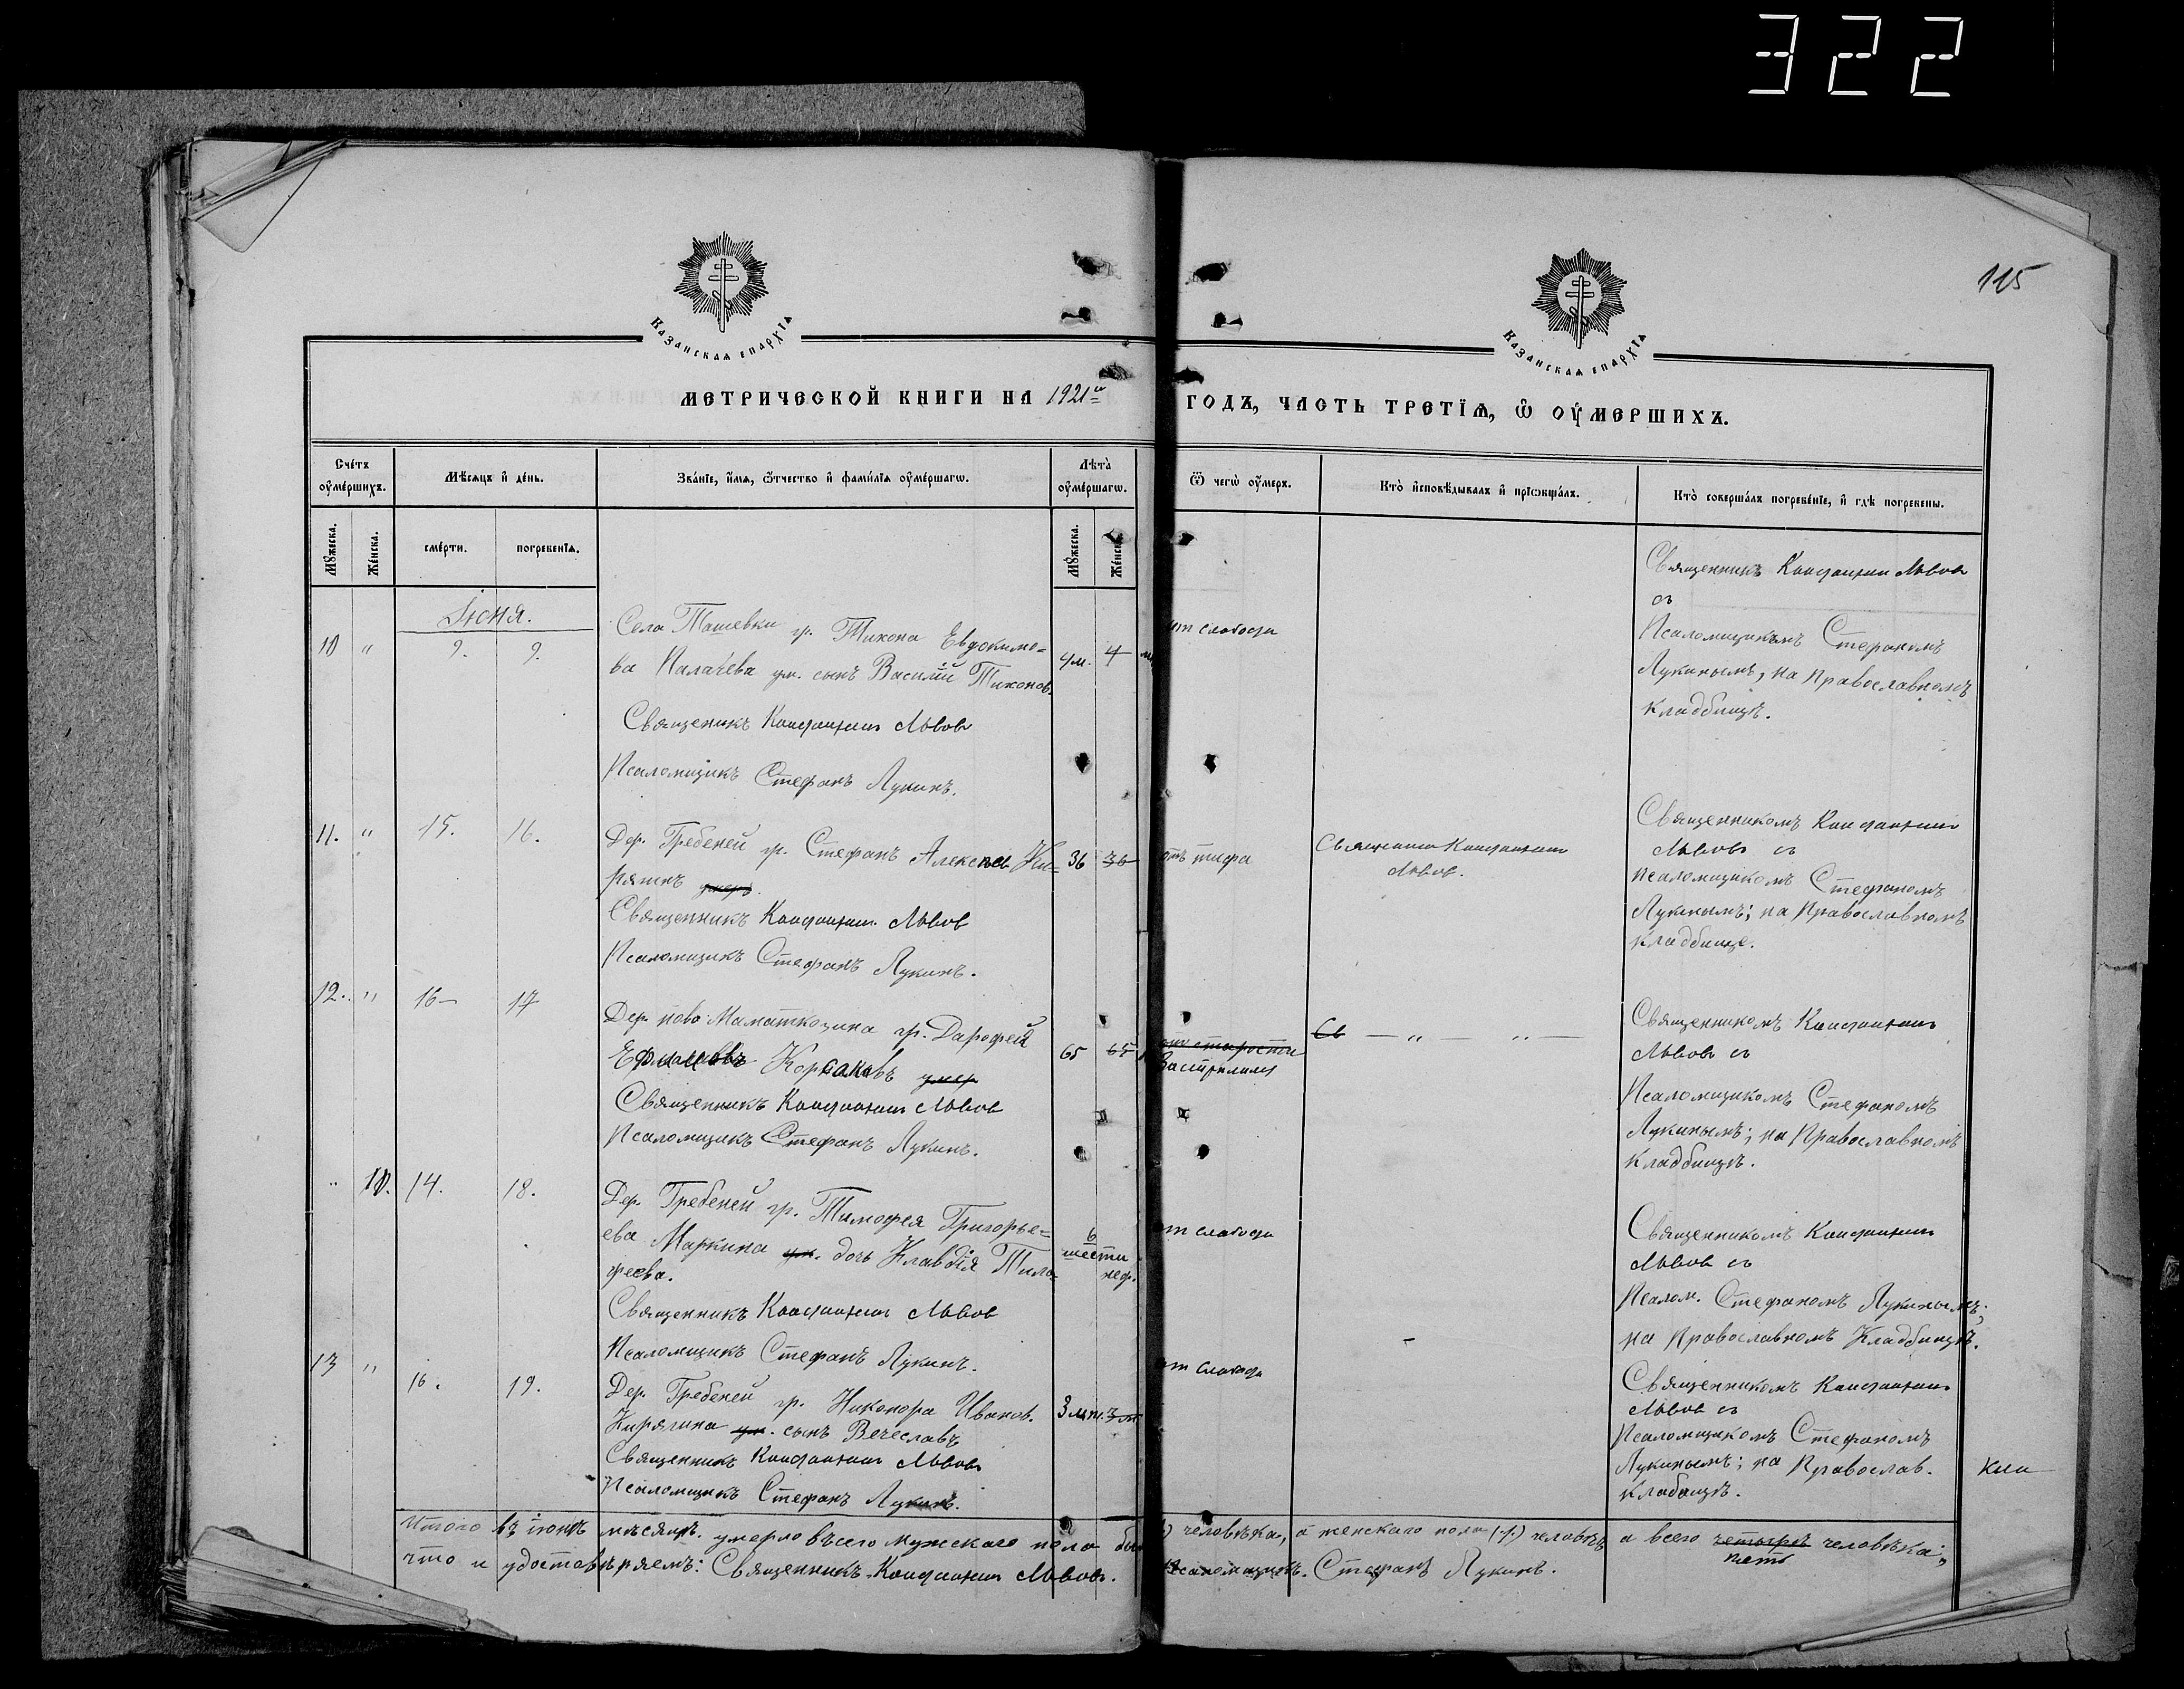 322
115
Казанская епархїѧ
Казанская епархїѧ
МЕТРИЧЕСКОЙ КНИГИ НА 1921й
ГОДЪ, ЧАСТЬ ТРЕТЇѦ, Ѿ ОУМЕРШИХЪ.
Счетъ оумершихъ.
Мѣсяцъ и день.
Званїе, имѧ, ѿчество и фамилїѧ оумершагѡ.
Лѣта оумершагѡ.
Ѿ чегѡ оумеръ.
Кто исповѣдывалъ и прїѡбщалъ.
Кто совершалъ погребенїе, и гдѣ погребены.
Мужеска.
Женска.
смерти.
погребенїѧ.
Мужеска.
Женска.
Іюня.
10 " 9. 9.
Села Ташевки гр. Тихона Евдокимо=
ва Палачева ум. сынъ Василій Тихонов.
Священикъ Константин Львов
Псаломщикъ Стефанъ Лукинъ.
4м. 4 м
от слабости
Священникъ Константин Львов
съ
Псаломщикомъ Стефаномъ
Лукинымъ, на Православномъ
кладбищѣ.
11. " 15. 16.
Дер. Гребеней гр. Стефанъ Алексѣев Ки=
ряшнъ умеръ.
Священникъ Константин Львов
Псаломщикъ Стефанъ Лукинъ.
36 36
отъ тифа
Священник Константин
Львов.
Священникомъ Константин
Львов съ
псаломщикомъ Стефаномъ
Лукинымъ; на Православномъ
кладбище.
12. " 16 17
Дер. ново Маматкозина гр. Дарофей
Корсаковъ умер
Священникъ Константин Львов
Псаломщикъ Стефанъ Лукинъ.
65 65
от старости
Св — " — " —
Священникомъ Константин
Львов съ
Псаломщикомъ Стефаномъ
Лукинымъ; на Православномъ
кладбищѣ.
" 10. 14. 18.
Дер. Гребеней гр. Тимофея Григорье=
ева Маркина ум. дочь Клавдія Тимо=
феева.
Священникъ Константин Львов
Псаломщикъ Стефанъ Лукинъ.
6
шести
нед.
от слабости
Священникомъ Константин
Львов съ
Псалом. Стефаномъ Лукинымъ;
на Православномъ Кладбищѣ.
13 " 16. 19.
Дер. Гребеней гр. Никонора Иванов.
Кирягина ум. сынъ Вечеславъ
Священникъ Константин Львов
Псаломщикъ Стефанъ Лукинъ.
от слабости
Священникомъ Константин
Львов съ
Псаломщикомъ Стефаномъ
Лукинымъ; на Православ.
кладбищѣ.
Итого въ іюнѣ мѣсяцѣ. умерло всего мужскаго пола
человѣка, а женскаго пола (1.) человѣкъ а всего четыре человѣка;
пять
что и удостовѣряемъ: Священникъ Константин Львов. Псаломщикъ. Стефанъ Лукинъ.